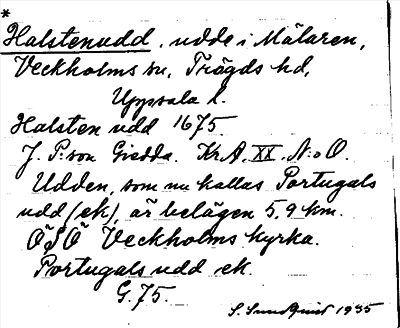 *
Halstenudd, udde i Mälaren,
Veckholms sn, Trögds hd,
Uppsala l.
Halsten udd 1675.
J. P:son Giedda. KrA. XX. N:o O.
Udden, som nu kallas Portugals
udd (ek), är belägen 5,9 km.
ÖSÖ Veckholms kyrka.
Portugals udd ek.
G. 75.
S. Sundquist 1935